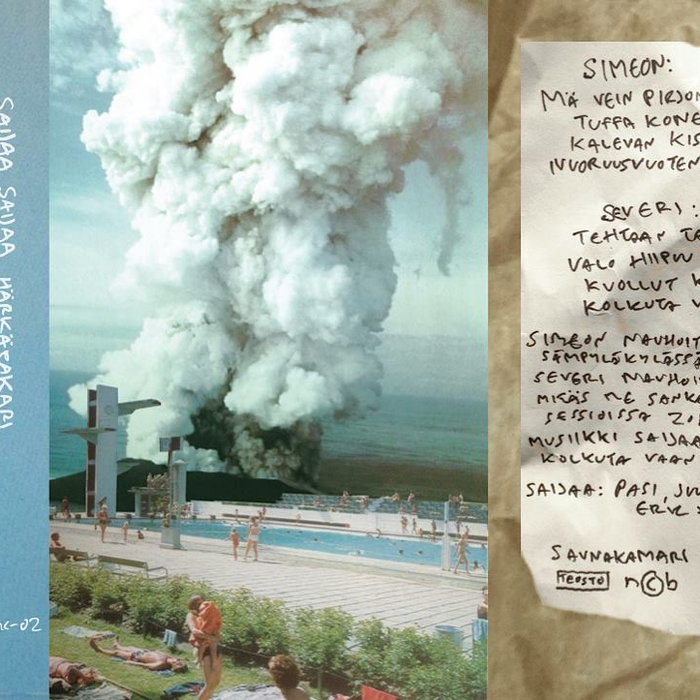 SAIJAA SAIJAA HÄRKÄTAKARI
-02
SIMEON:
MÄ VEIN PIRJON
TUFFA KONE
KALEVAN KIS
NUORUUSVUOTEN
SEVERI:
TEHTAAN TA
VALO HIIPUU
KUOLLUT K
KOLKUTA V
SIMEON NAUHOIT
SÄMPYLÄKYLÄSSÄ
SEVERI NAUHOI
MIKÄS ME SANKA
SESSIOISSA ZO
MUSIIKKI SAIJAA
KOLKUTA VAAN
SAIJAA: PASI, JU
ERIK
SAUNAKAMARI
TEOSTO n©b